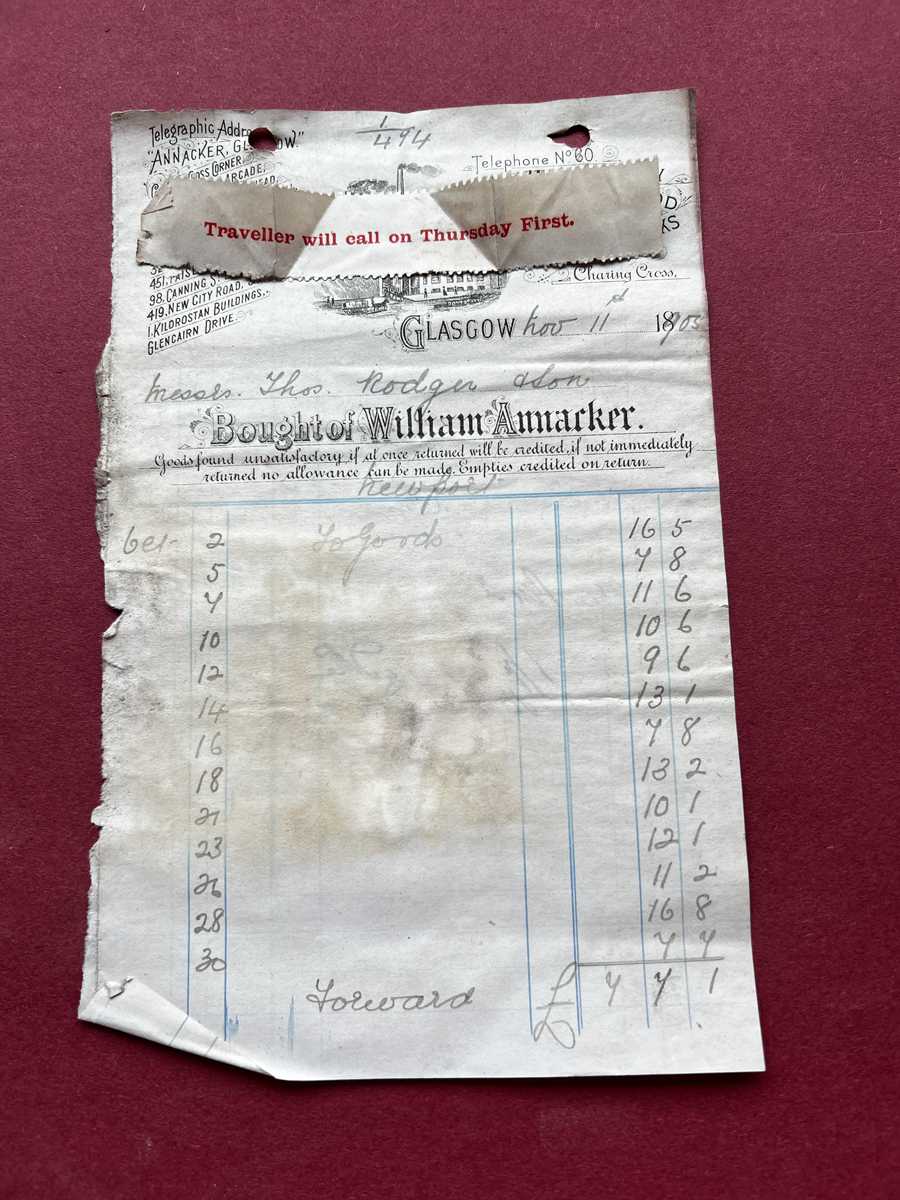 Telegraphic Addre
"ANNACKER, GL OW."
OSS CORNER,
ARCADE,
EAD,
1/494
Telephone No 60.
Y
D
KS
Traveller will call on Thursday First.
451, PAIS
98, CANNING S
419, NEW CITY ROAD, &
1, KILDROSTAN BUILDINGS,
GLENCAIRN DRIVE.
Charing Cross,
GLASGOW Nov 11d 1903
Messrs. Thos. Rodger & Son
Bought of William Annacker.
Goods found unsatisfactory if at once returned will be credited, if not immediately
returned no allowance can be made. Empties credited on return.
Newport
Oct 2 To Goods 16 5
5 7 8
7 11 6
10 10 6
12 9 6
14 13 1
16 7 8
18 13 2
21 10 1
23 12 1
26 11 2
28 16 8
30 7 7
Forward £ 7 7 1